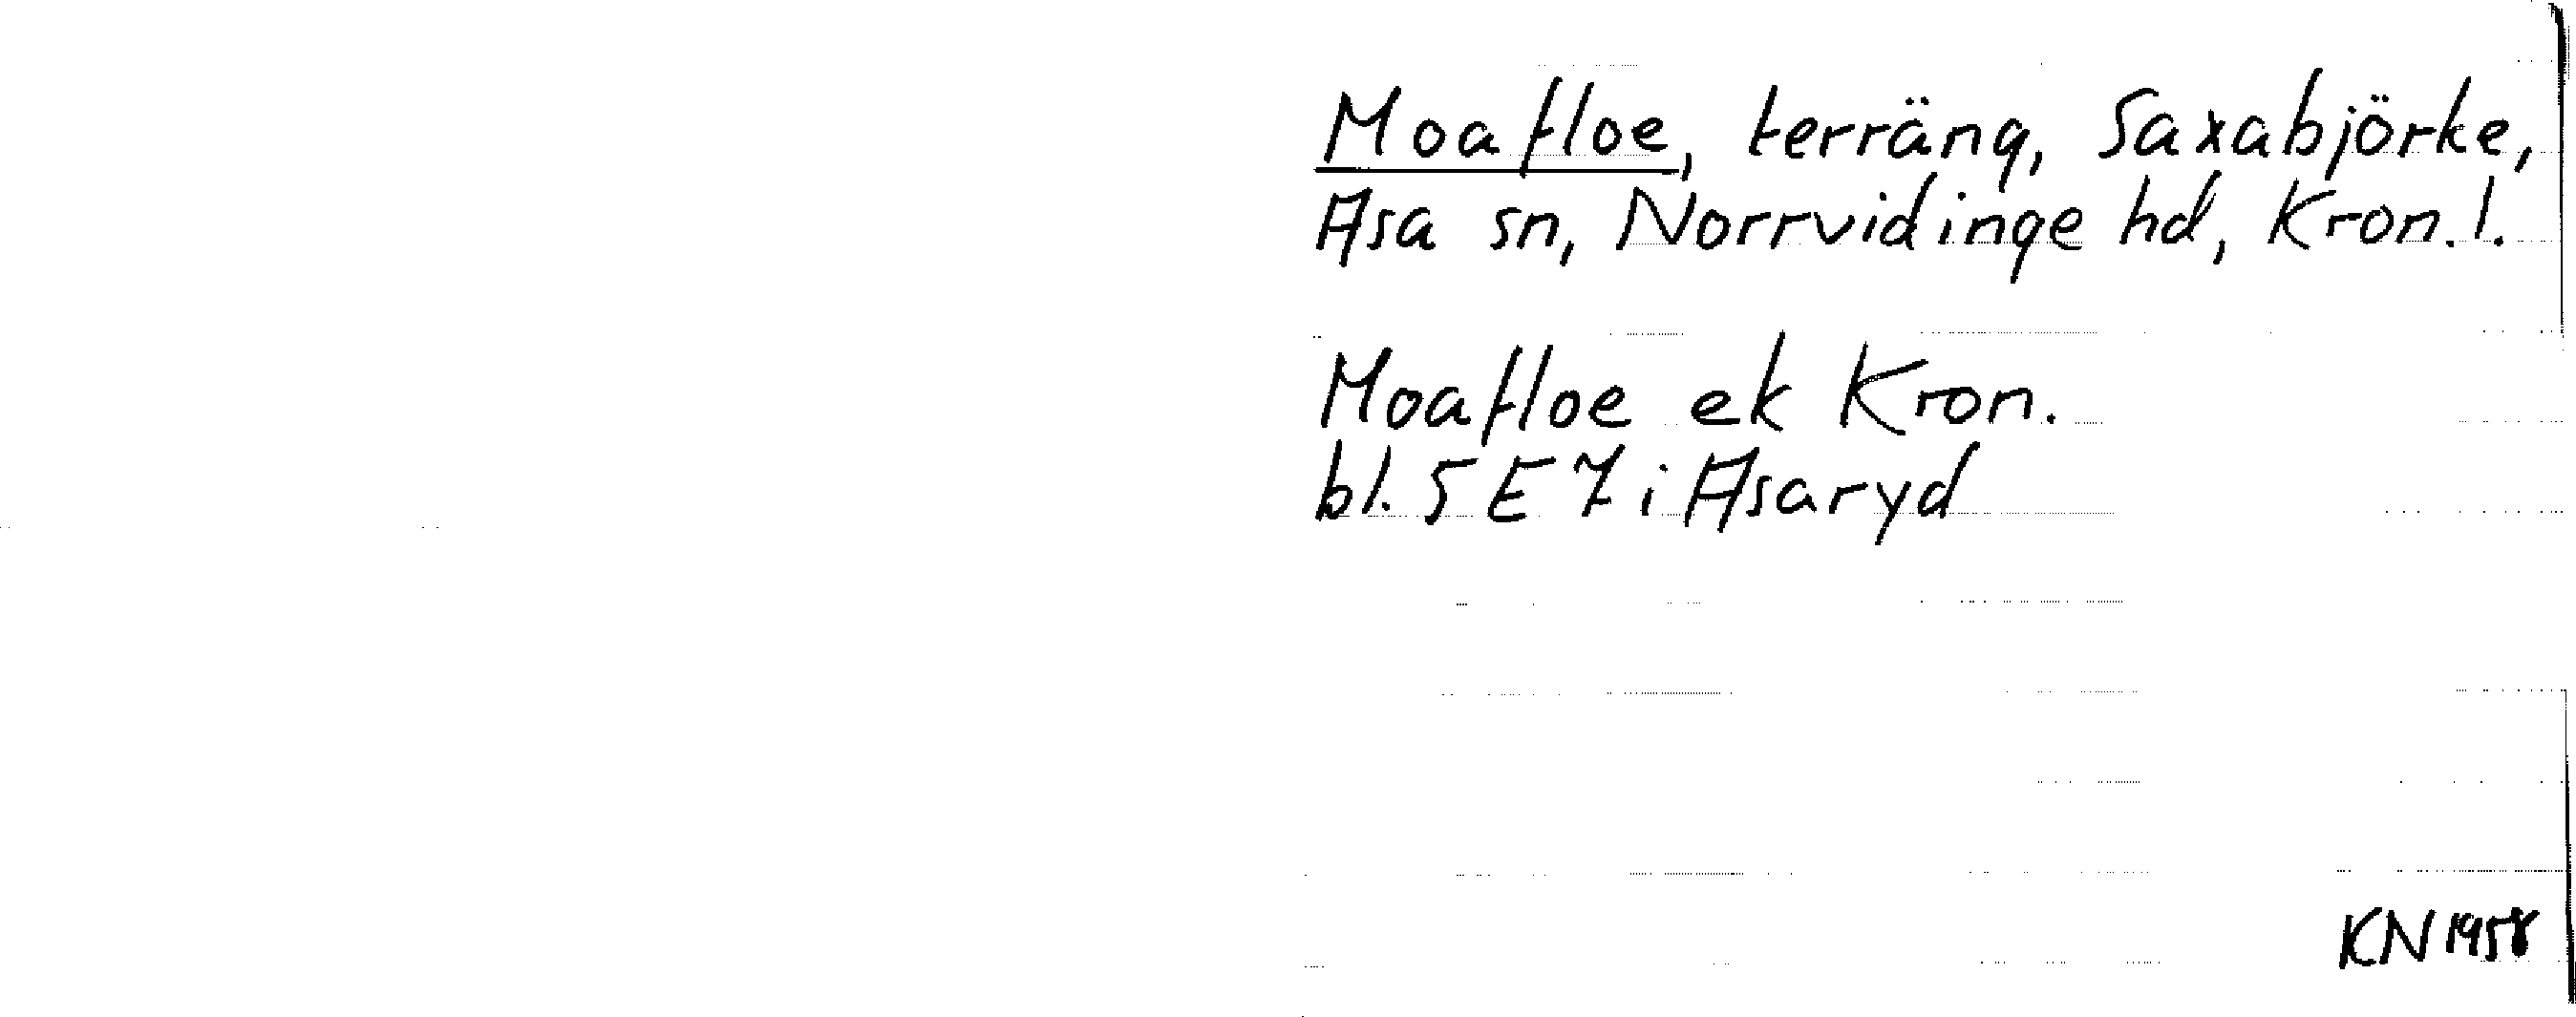 Moafloe, terräng, Saxabjörke,
Asa sn, Norrvidinge hd, Kron. l.
Moafloe ek Kron.
bl. 5 E 7 i Asaryd
KN 1958